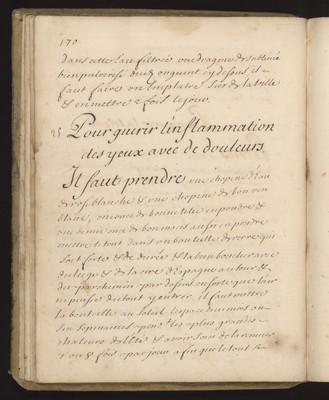 170
dans cette eau filtrée une dragme de sublimé
bien pulverisé du onguent cy dessus il
faut faire un emplatre sur de la toille
& en mettre 2 fois le jour.
25 Pour guerir l'inflammation
des yeux avec de douleurs.
Il faut prendre une chopine d'eau
de rose blanche & une chopine de bon vin
blanc, une once de bonne tutie en poudre &
une demie once de bon aussi en poudre
mettre le tout dans un bouteille de verre qui
soit forte & de durée & la bien boucher avec
du liege & de la cire d'Espagne au tour &
du parchemin par dessus en sorte que l'air
ne puisse du tout y entrer. il faut mettre
la bouteille au soleil l'espace de cinq ou
six semaines pendant les plus grandes
chaleurs de l'été & avoir soin de la remuer
7 ou 8 fois par jour a fin que le tout se